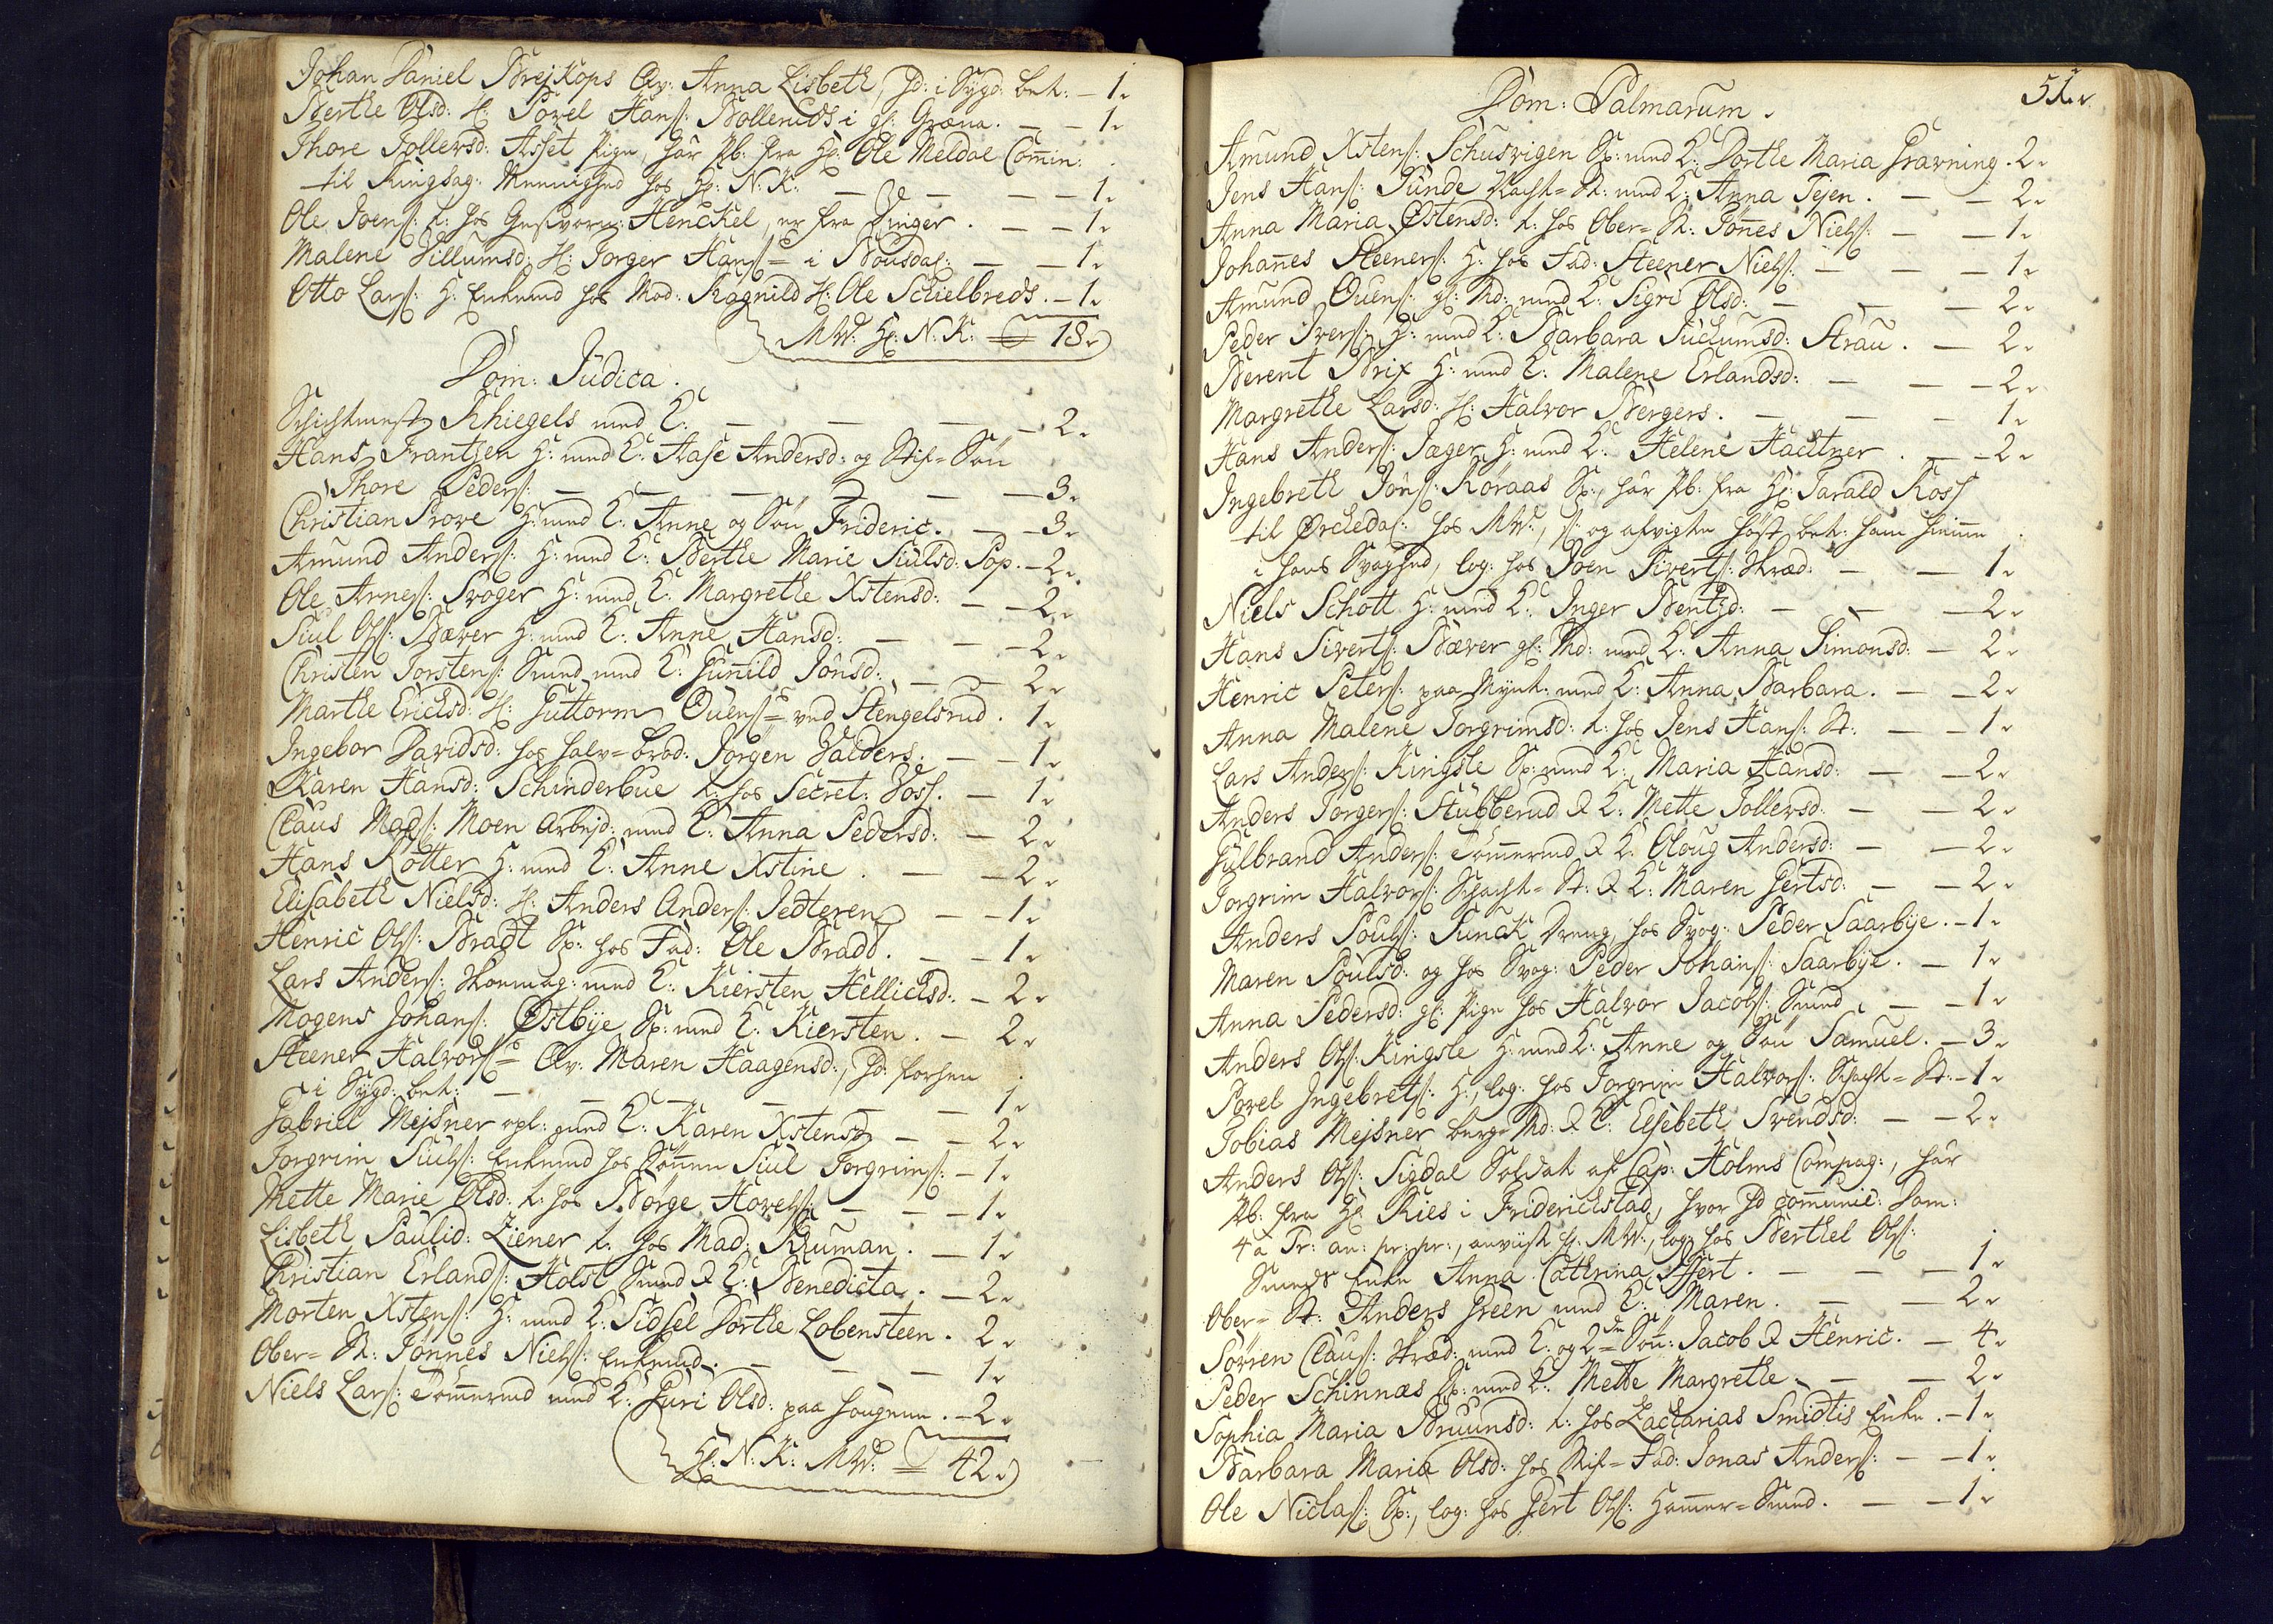 Johan Daniel Brejkops Qv: Anna Lisbeth, Hd: i Sygd: bet: — 1.
Berthe Olsd: H: Povel Hanſ: Bolleruds i gl: Græna. — — 1.
Thore Tollevsd: Aſset pige, har Ab: fra Hr: Ole Meldal Com̄in:
til Kingsag: Menighed hos Hr: N: K: — — — 1.
Ole Joenſ: t: hos Geſvorn: Henckel, er fra Vinger. — — 1.
Malene Villumsd: H: Torger Hanſ= i Nousdal: — — 1.
Otto Larſ: H: Enkemd hos Mod: Ragnild H: Ole Schielbreds. — 1.
MW. Hr: N: K: = 18.
Dom: Judica.
Schichtmest: Schiegels med K: — — — 2.
Hans Frantzen H: med K: Aaſe Andersd: og Stif=Søn
Thore Pederſ: — — — — 3.
Christian Prove H: med K: Anne og Søn Frideric. — — 3.
Amund Anderſ: H: med K: Berthe Marie Siulsd: Pop. — 2.
Ole Arneſ: Svoger H: med K: Margrethe Xstensd: — — 2.
Siul Olſ: Bæver H: med K: Anne Hansd: — — — 2.
Christen Torstenſ: Smed med K: Gunild Jonsd: — — 2.
Marthe Erichsd: H: Guttorm Ouenſ= ved Stengelsrud. 1.
Ingebor Davidsd: hos halv=brod: Jørgen Valders. — — 1.
Karen Hansd: Schinderbue t: hos Secret: Voss. — 1.
Claus Madſ: Moen Arbejd: med K: Anna Pedersd: — 2.
Hans Rotter H: med K: Anne Xstine. — — 2.
Eliſabeth Nielsd: H: Anders Anderſ: Jedteren — — 1.
Henric Olſ: Bradt Sp: hos Fad: Ole Bradt. — — 1.
Lars Anderſ: Skomag: med K: Kiersten Hellichsd: — 2.
Mogens Johanſ: Østbye Sp: med K: Kiersten. — 2.
Steener Halvorſ= Qv: Maren Haagensd:, Hd: forhen
i Sygd: bet: — — — — — 1.
Gabriel Mejſner opl: med K: Karen Xstensd — — 2.
Torgrim Siulſ: Enkemd hos Søn̄en Siul Torgrimſ: — 1.
Mette Marie Olsd: t: hos Børge Hovelſ: — — — 1.
Lisbeth Paulid: Ziener t: hos Mad: Bruman. — 1.
Christian Erlandſ: Holst Smed & K: Benedicta. — 2.
Morten Xstenſ: H: med K: Sidſel Dorthe Lobensteen. 2.
Ober=St: Jon̄es Nielſ: Enkemd. — — — 1.
Niels Larſ: Tøm̄ermd med K: Guri Olsd: paa Haugene. — 2.
Hr: N: K: MW: = 42.
51.
Dom: Palmarum.
Amund Xstenſ: Schusvigen Sp: med K: Dorthe Maria Gravning. 2.
Jens Hanſ: Sunde Schacht=St: med K: Anna Tejen. — — 2.
Anna Maria Østensd: t: hos Ober=St: Jon̄es Nielſ: — — 1.
Johan̄es Steenerſ: H: hos Fad: Steener Nielſ: — — — 1.
Amund Ouenſ: gl: Md: med K: Sigri Olsd: — — — 2.
Peder Iverſ: H: med K: Barbara Siulumsd: Strau. — 2.
Berent Brix H: med K: Malene Erlandsd: — — — 2.
Margrethe Larsd: H: Halvor Bergers. — — — 1.
Hans Anderſ: Jæger H: med K: Helene Hachtner. — — 2.
Ingebreth Jonſ: Røraas Sp:, har Ab: fra Hr: Tarald Roſs
til Orchedal: hos MW:, og afvigte høst bet: ham hiem̄e
i hans Svaghed, log: hos Joen Sivertſ: Skræd: — — 1.
Niels Schott H: med K: Inger Bentzd: — — — 2.
Hans Sivertſ: Bæver gl: Md: med K: Anna Simonsd: — 2.
Henric Peterſ: paa Mynt: med K: Anna Barbara. — — 2.
Anna Malene Torgrimsd: t: hos Jens Hanſ: St: — — 1.
Lars Anderſ: Kingsle Sp: med K: Maria Hansd: — — 2.
Anders Torgerſ: Stubberud & K: Mette Tollevsd: — — 2.
Gulbrand Anderſ: Tøm̄ermd & K: Oloug Andersd: — — 2.
Torgrim Halvorſ: Schacht=St: & K: Maren Gertsd: — — 2.
Anders Poulſ: Funck Dreng, hos Svog: Peder Saarbye. — 1.
Maren Poulsd: og hos Svog: Peder Johanſ: Saarbye. — 1.
Anna Pedersd: gl: pige hos Halvor Jacobſ: Smed. — — 1.
Anders Olſ: Kingsle H: med K: Anne og Søn Samuel. — 3.
Povel Ingebretſ: H:, log: hos Torgrim Halvorſ: Schacht=St: — 1.
Tobias Mejsner berg=Md: & K: Elſebeth Svendsd: — — 2.
Anders Olſ: Sigdal Soldat af Cap: Holms Compag:, har
Ab: fra Hr: Ries i Friderichstad, hvor Hd com̄unic: Dom:
4 à Tr: an: pr: pr:, anviist Hr: MW:, log: hos Berthel Olſ:
Smeds Enke Anna Cathrina Ffert. — — — 1.
Ober=St: Anders Green med K: Maren. — — 2.
Søren Clauſ: Skræd: med K: og 2de Søn̄: Jacob & Henric. — 4.
Peder Schinnæs Sp: med K: Mette Margrethe. — — 2.
Sophia Maria Bruunsd: t: hos Zacharias Smidtis Enke. — 1.
Barbara Maria Olsd: hos Stif=Fad: Jonas Anderſ: — — 1.
Ole Niclaſ: Sp:, log: hos Gert Olſ: Ham̄er=Smed. — — 1.